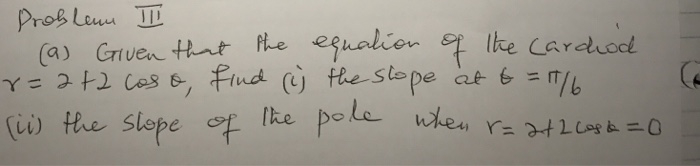 Problem III
(a) Given that the equation of the Cardiod
r = 2+2 cos θ, find (i) the slope at θ = π/6
(ii) the slope of the pole when r = 2+2 cos θ = 0